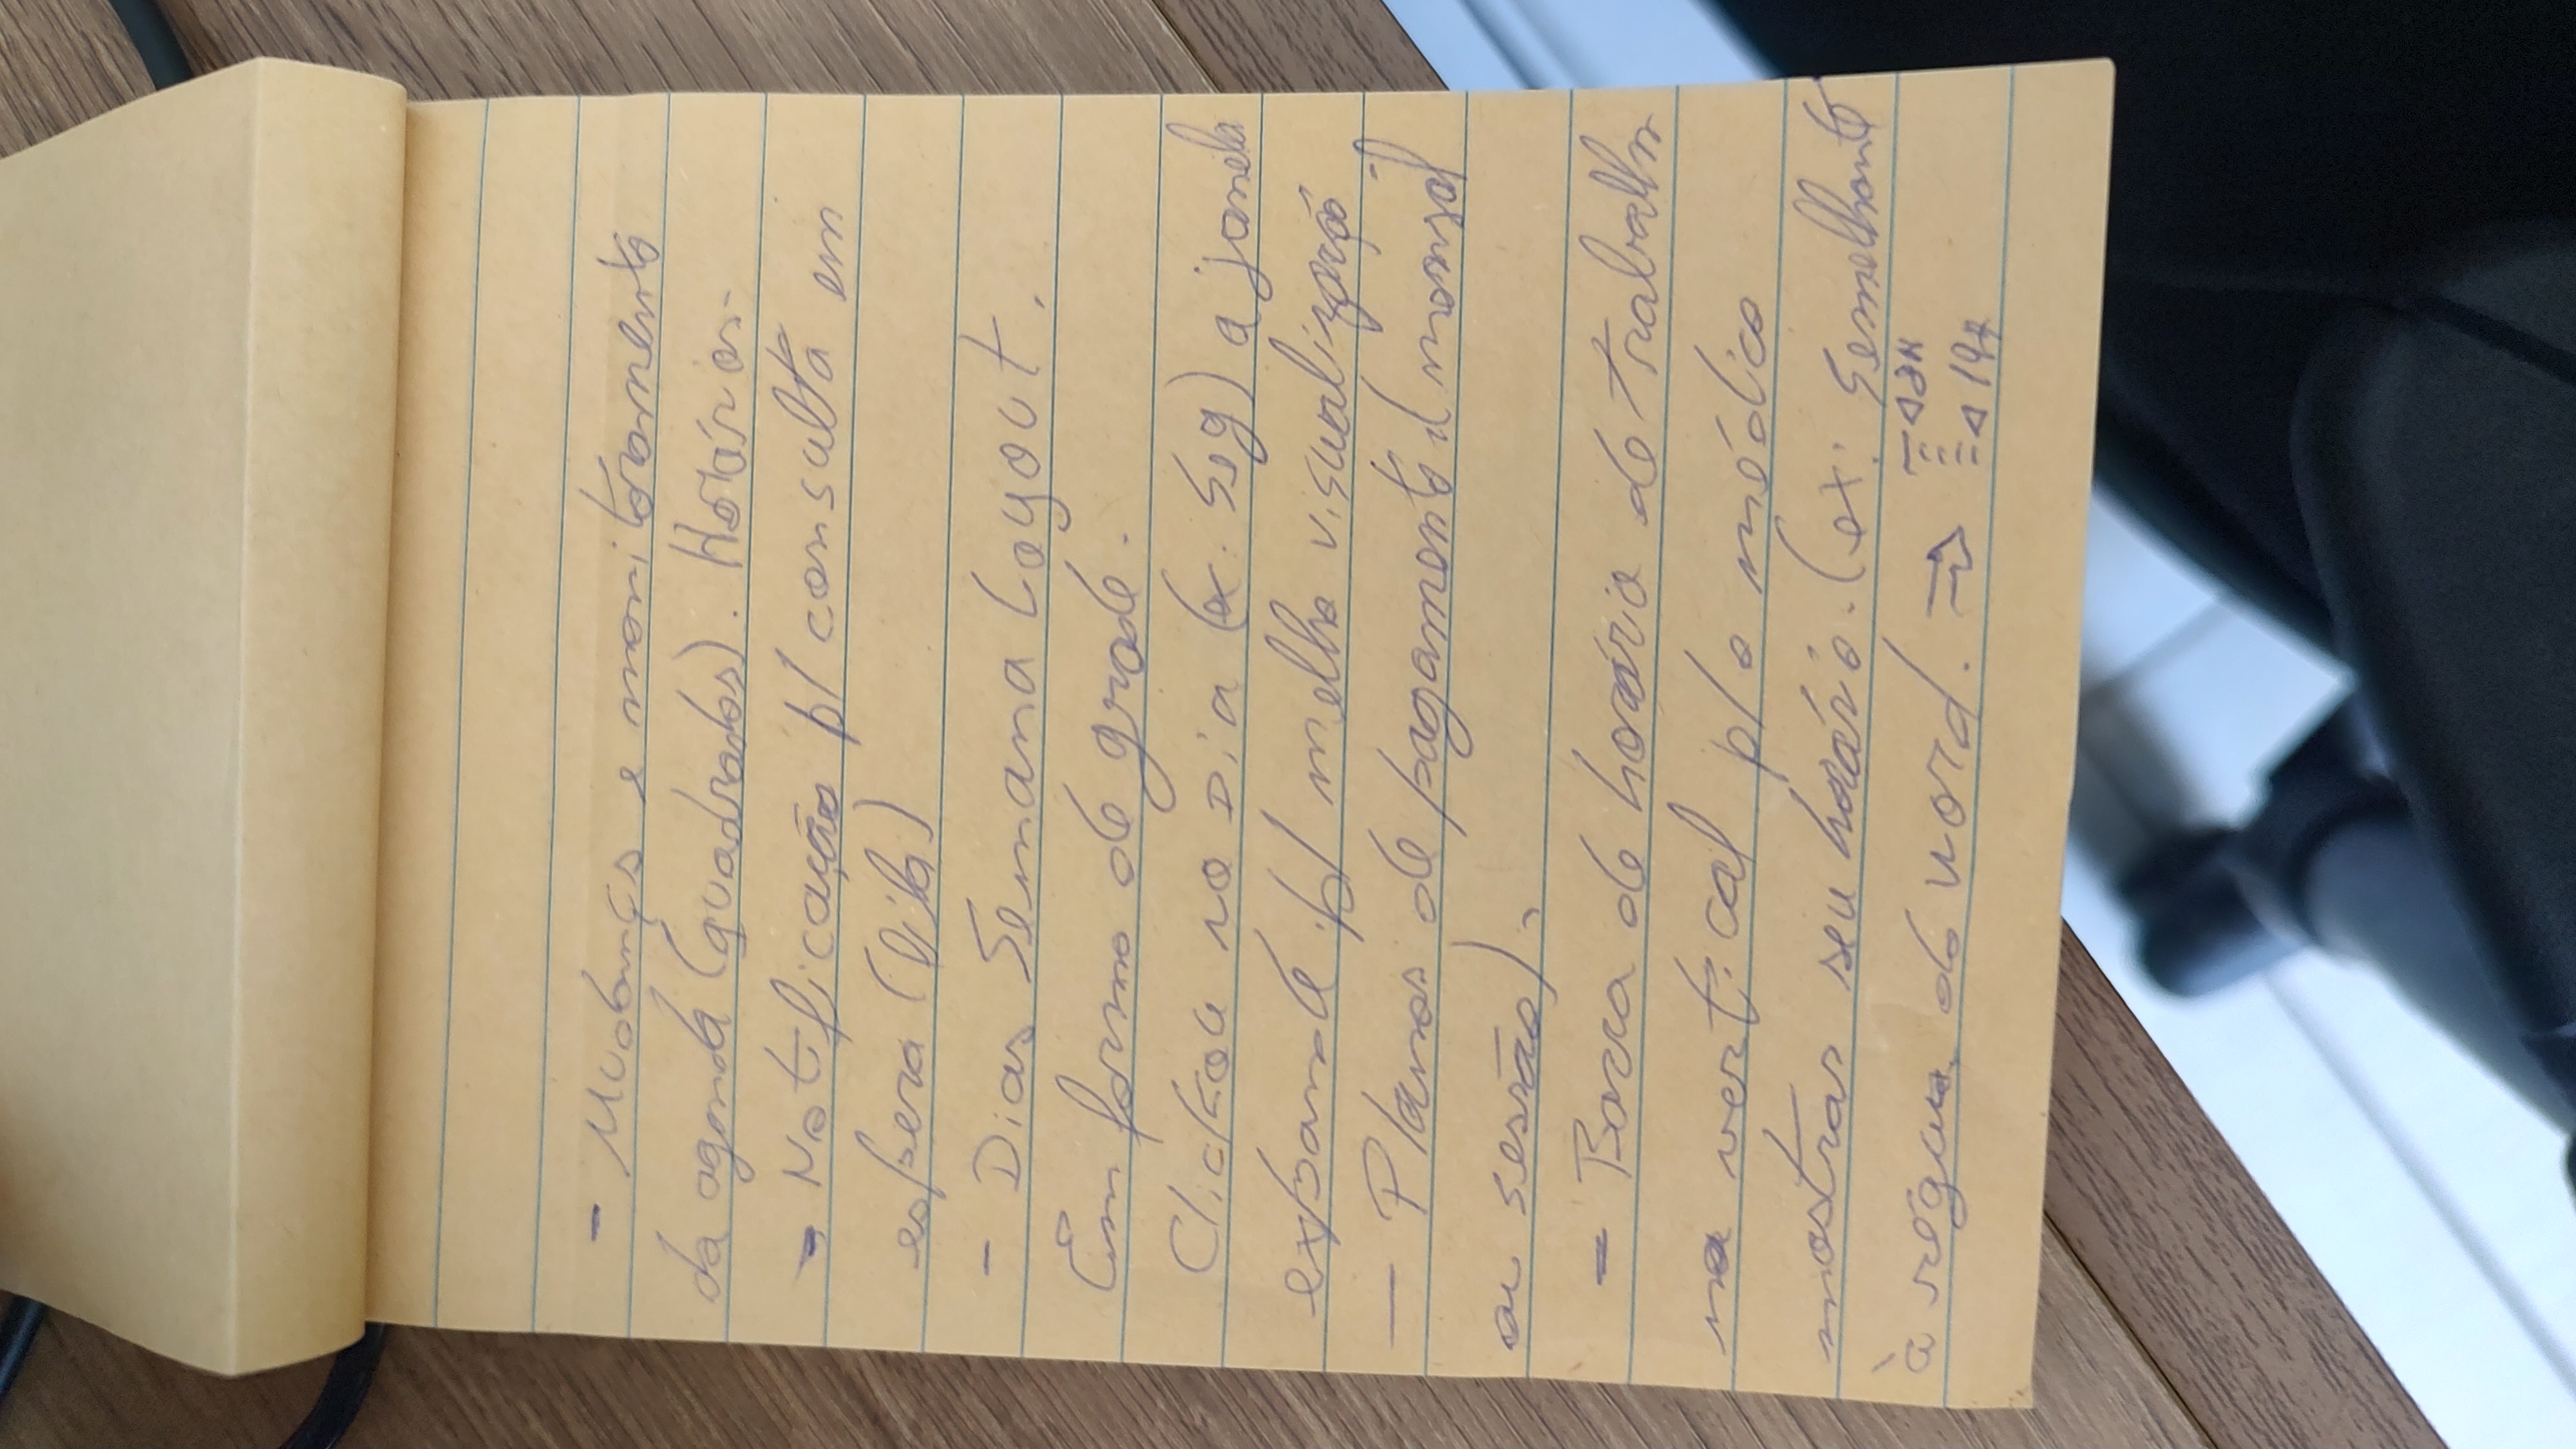 - Mudança e monitoramento
da agenda (quadrados). Horários.
- Notificação p/ consulta em
espera (fila)
- Dias Semana Layout.
Em forma de grade.
Clickou no Dia (ex. Seg) a janela
expande p/ melho visualização
- Planos de pagamento (mensal
ou sessão).
- Barra de horário de trabalho
na vertical p/ o médico
mostrar seu horário. (ex: Semelhante
à régua do word. ⇒ 8H
19H